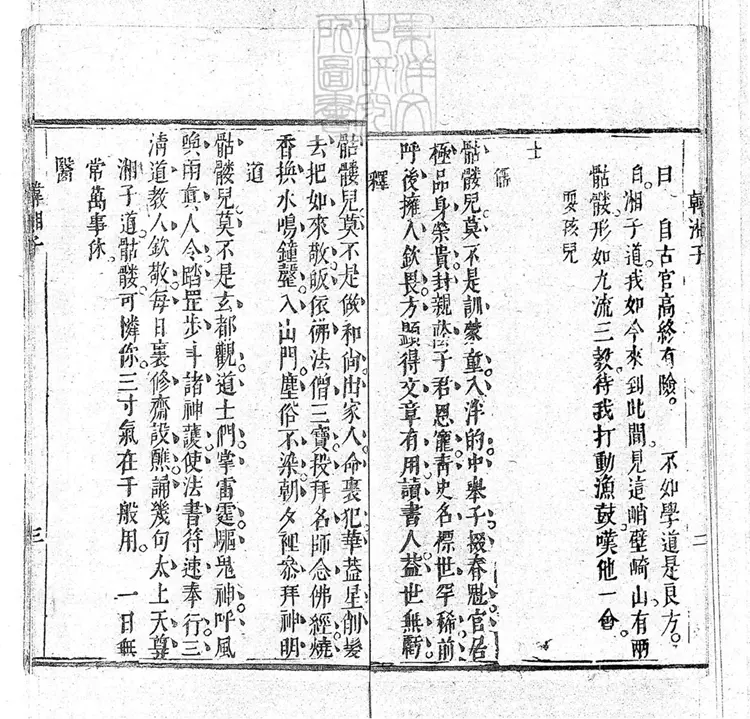 韓湘子
二
曰　自古官高終有險。　不如學道是良方。
白湘子道。我如今來到此間。見這峭壁崎山。有兩
骷髏。形如九流三教。待我打動漁鼓。嘆他一會。
耍孩兒
士
儒
骷髏兒莫不是訓蒙童入泮的中舉子掇春魁官居
極品身榮貴封親䕃子君恩寵靑史名標世罕稀前
呼後擁人欽畏方顯得文章有用讀書人蓋世無虧
釋
骷髏兒莫不是做和尙出家人命裏犯華蓋星削髮
去把如來敬皈依彿法僧三寶投拜名師念佛經燒
香換水鳴鐘聲入山門塵俗不染朝夕裡叅拜神明
道
骷髏兒莫不是玄都觀道士們掌雷霆驅鬼神呼風
喚雨眞人令踏罡步斗諸神護使法書符速奉行三
淸道教人欽敬每日裏修齋設醮誦幾句太上天尊
湘子道。骷髏可憐你。三寸氣在千般用。　一日無
常萬事休。
醫
韓湘子
三